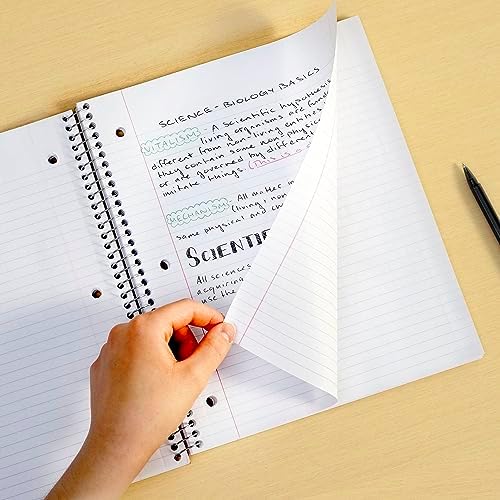 SCIENCE - BIOLOGY BASICS
VITALISM - A scientific hypothesis
living organisms are funda
different from non-living entities
they contain some non-physica
or are governed by different
imitate things. (This is a
MECHANISM: All matter
(living, non
same physical and ch
SCIENTI
All sciences
acquiring
use the